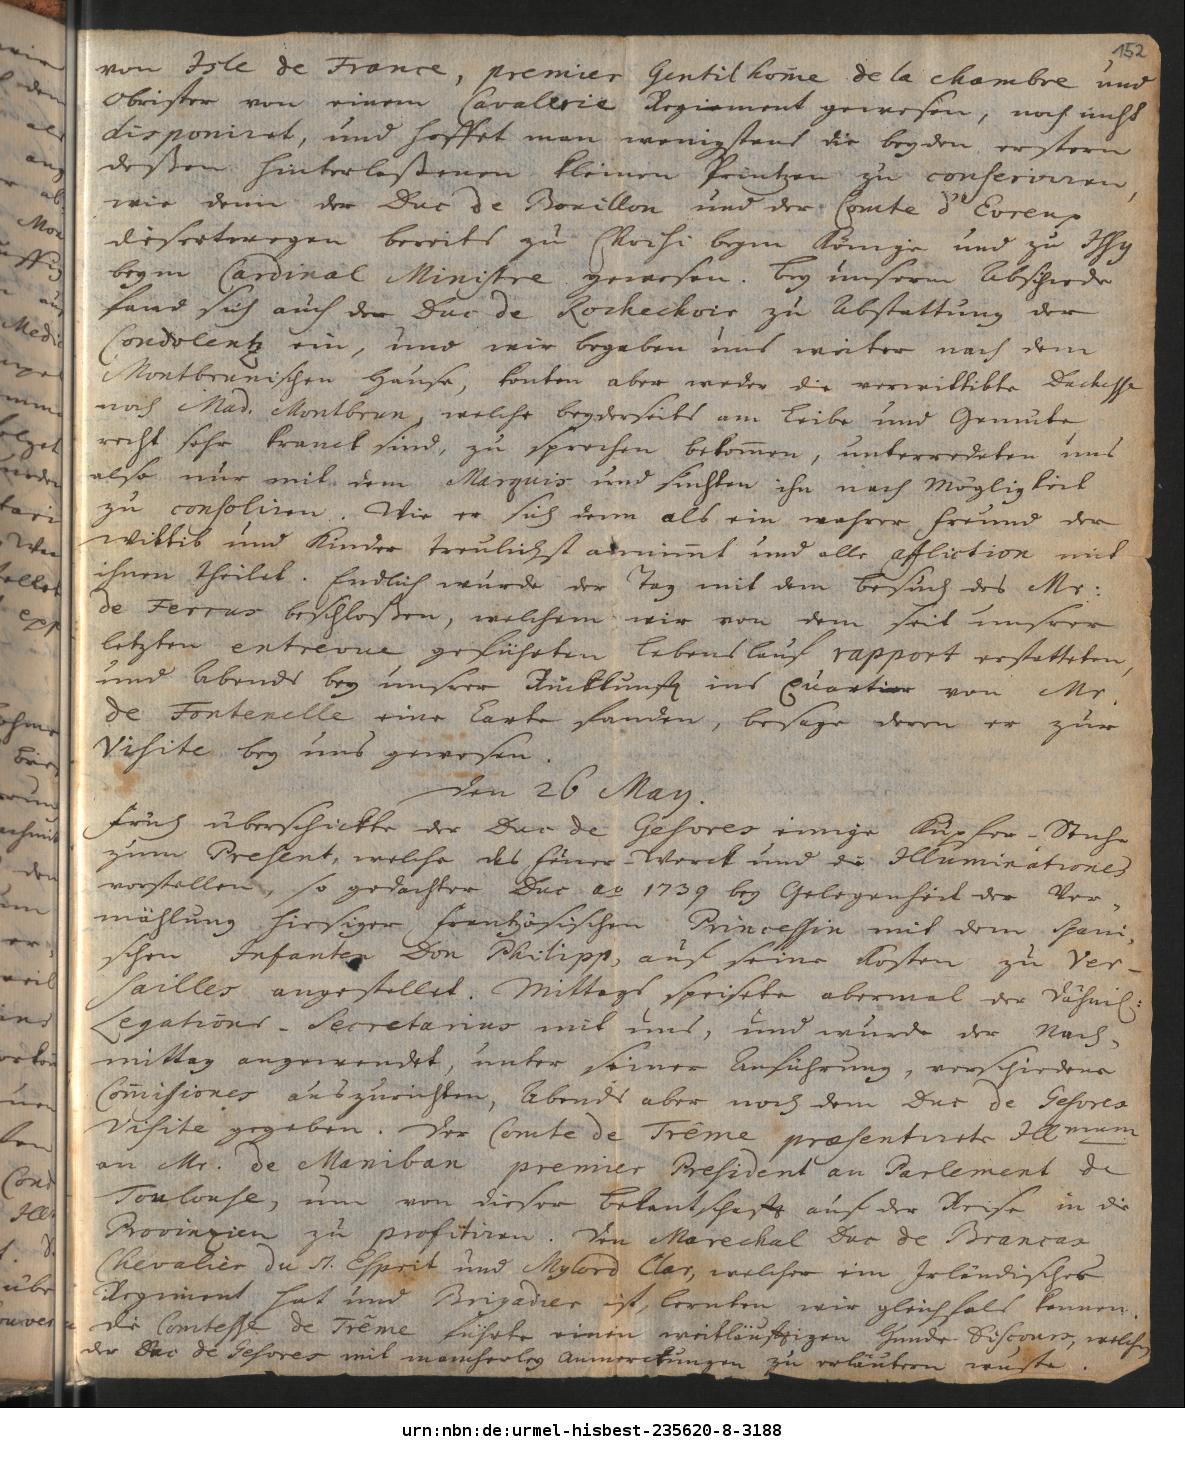 152
von Isle de France, premier Gentilhom̄e de la chambre und
Obrister von einem Cavallerie Regiment gewesen, noch nicht
disponiret, und hoffet man wenigstens die beyden erstern
deßen hinterlaßenen kleinen Printzen zu conserviren,
wie denn der Duc de Bouillon und der Comte d'Evreux
dieserwegen bereits zu Choisi beym Könige und zu Issy
beym Cardinal Ministre gewesen. bey unserm Abschiede
fand sich auch der Duc de Rochechoir zu Abstattung der
Condolentz ein, und wir begaben uns weiter nach dem
Montbrunischen Hause, konten aber weder die verwittibte Duchesse
noch Mad. Montbrun, welche beyderseits am Leibe und Gemüte
recht sehr kranck sind, zu sprechen bekom̄en, unterredeten uns
also nur mit dem Marquis und suchten ihn nach Mögligkeit
zu consoliren. Wie er sich denn als ein wahrer Freund der
Wittib und Kinder treulichst annim̄t und alle affliction mit
ihnen theilet. Endlich wurde der Tag mit dem besuch des Mr:
de Ferrus beschloßen, welchem wir von dem seit unserer
letzten entrevue geführten Lebenslauf rapport erstatteten,
und Abends bey unserer Rückkunft ins Quartier von Mr.
de Fontenelle eine Carte fanden, besage deren er zur
Visite bey uns gewesen.
Den 26 May.
Früh überschickte der Duc de Gesvres einige Kupfer-Stiche
zum Present, welche das Feuer-Werck und die Illuminationes
vorstellen, so gedachter Duc ao 1739 bey Gelegenheit der Ver-
mählung hiesiger Frantzösischen Princessin mit dem Spani-
schen Infanten Don Philipp, auf seine Kosten zu Ver-
sailles angestellet. Mittags speisete abermal der Dähnisch:
Legations-Secretarius mit uns, und wurde der Nach-
mittag angewendet, unter seiner Anführung, verschiedene
Com̄isiones auszurichten, Abends aber noch dem Duc de Gesvres
Visite gegeben. Der Comte de Trême præsentirete Illmum
an Mr. de Maniban premier President au Parlement de
Toulouse, um von dieser bekantschaft auf der Reise in die
Provinzien zu profitiren. Den Marechal Duc de Brancas
Chevalier du St. Esprit und Mylord Clar, welcher ein Irländisches
Regiment hat und Brigadier ist, lernten wir gleichfals kennen.
Die Comtesse de Trême führte einen weitläuftigen Hunde-Discours, welchen
der Duc de Gesvres mit mancherley Anmerckungen zu erläutern wuste.
urn:nbn:de:urmel-hisbest-235620-8-3188